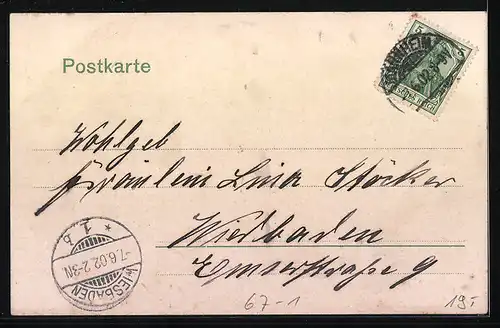 Postkarte
Wohlgeb
Fräulein Lina Stöcker
Wiesbaden
Emserstraße 9
WIESBADEN
* 1 b
-7.6.02.2-3N.
67-1
19.-